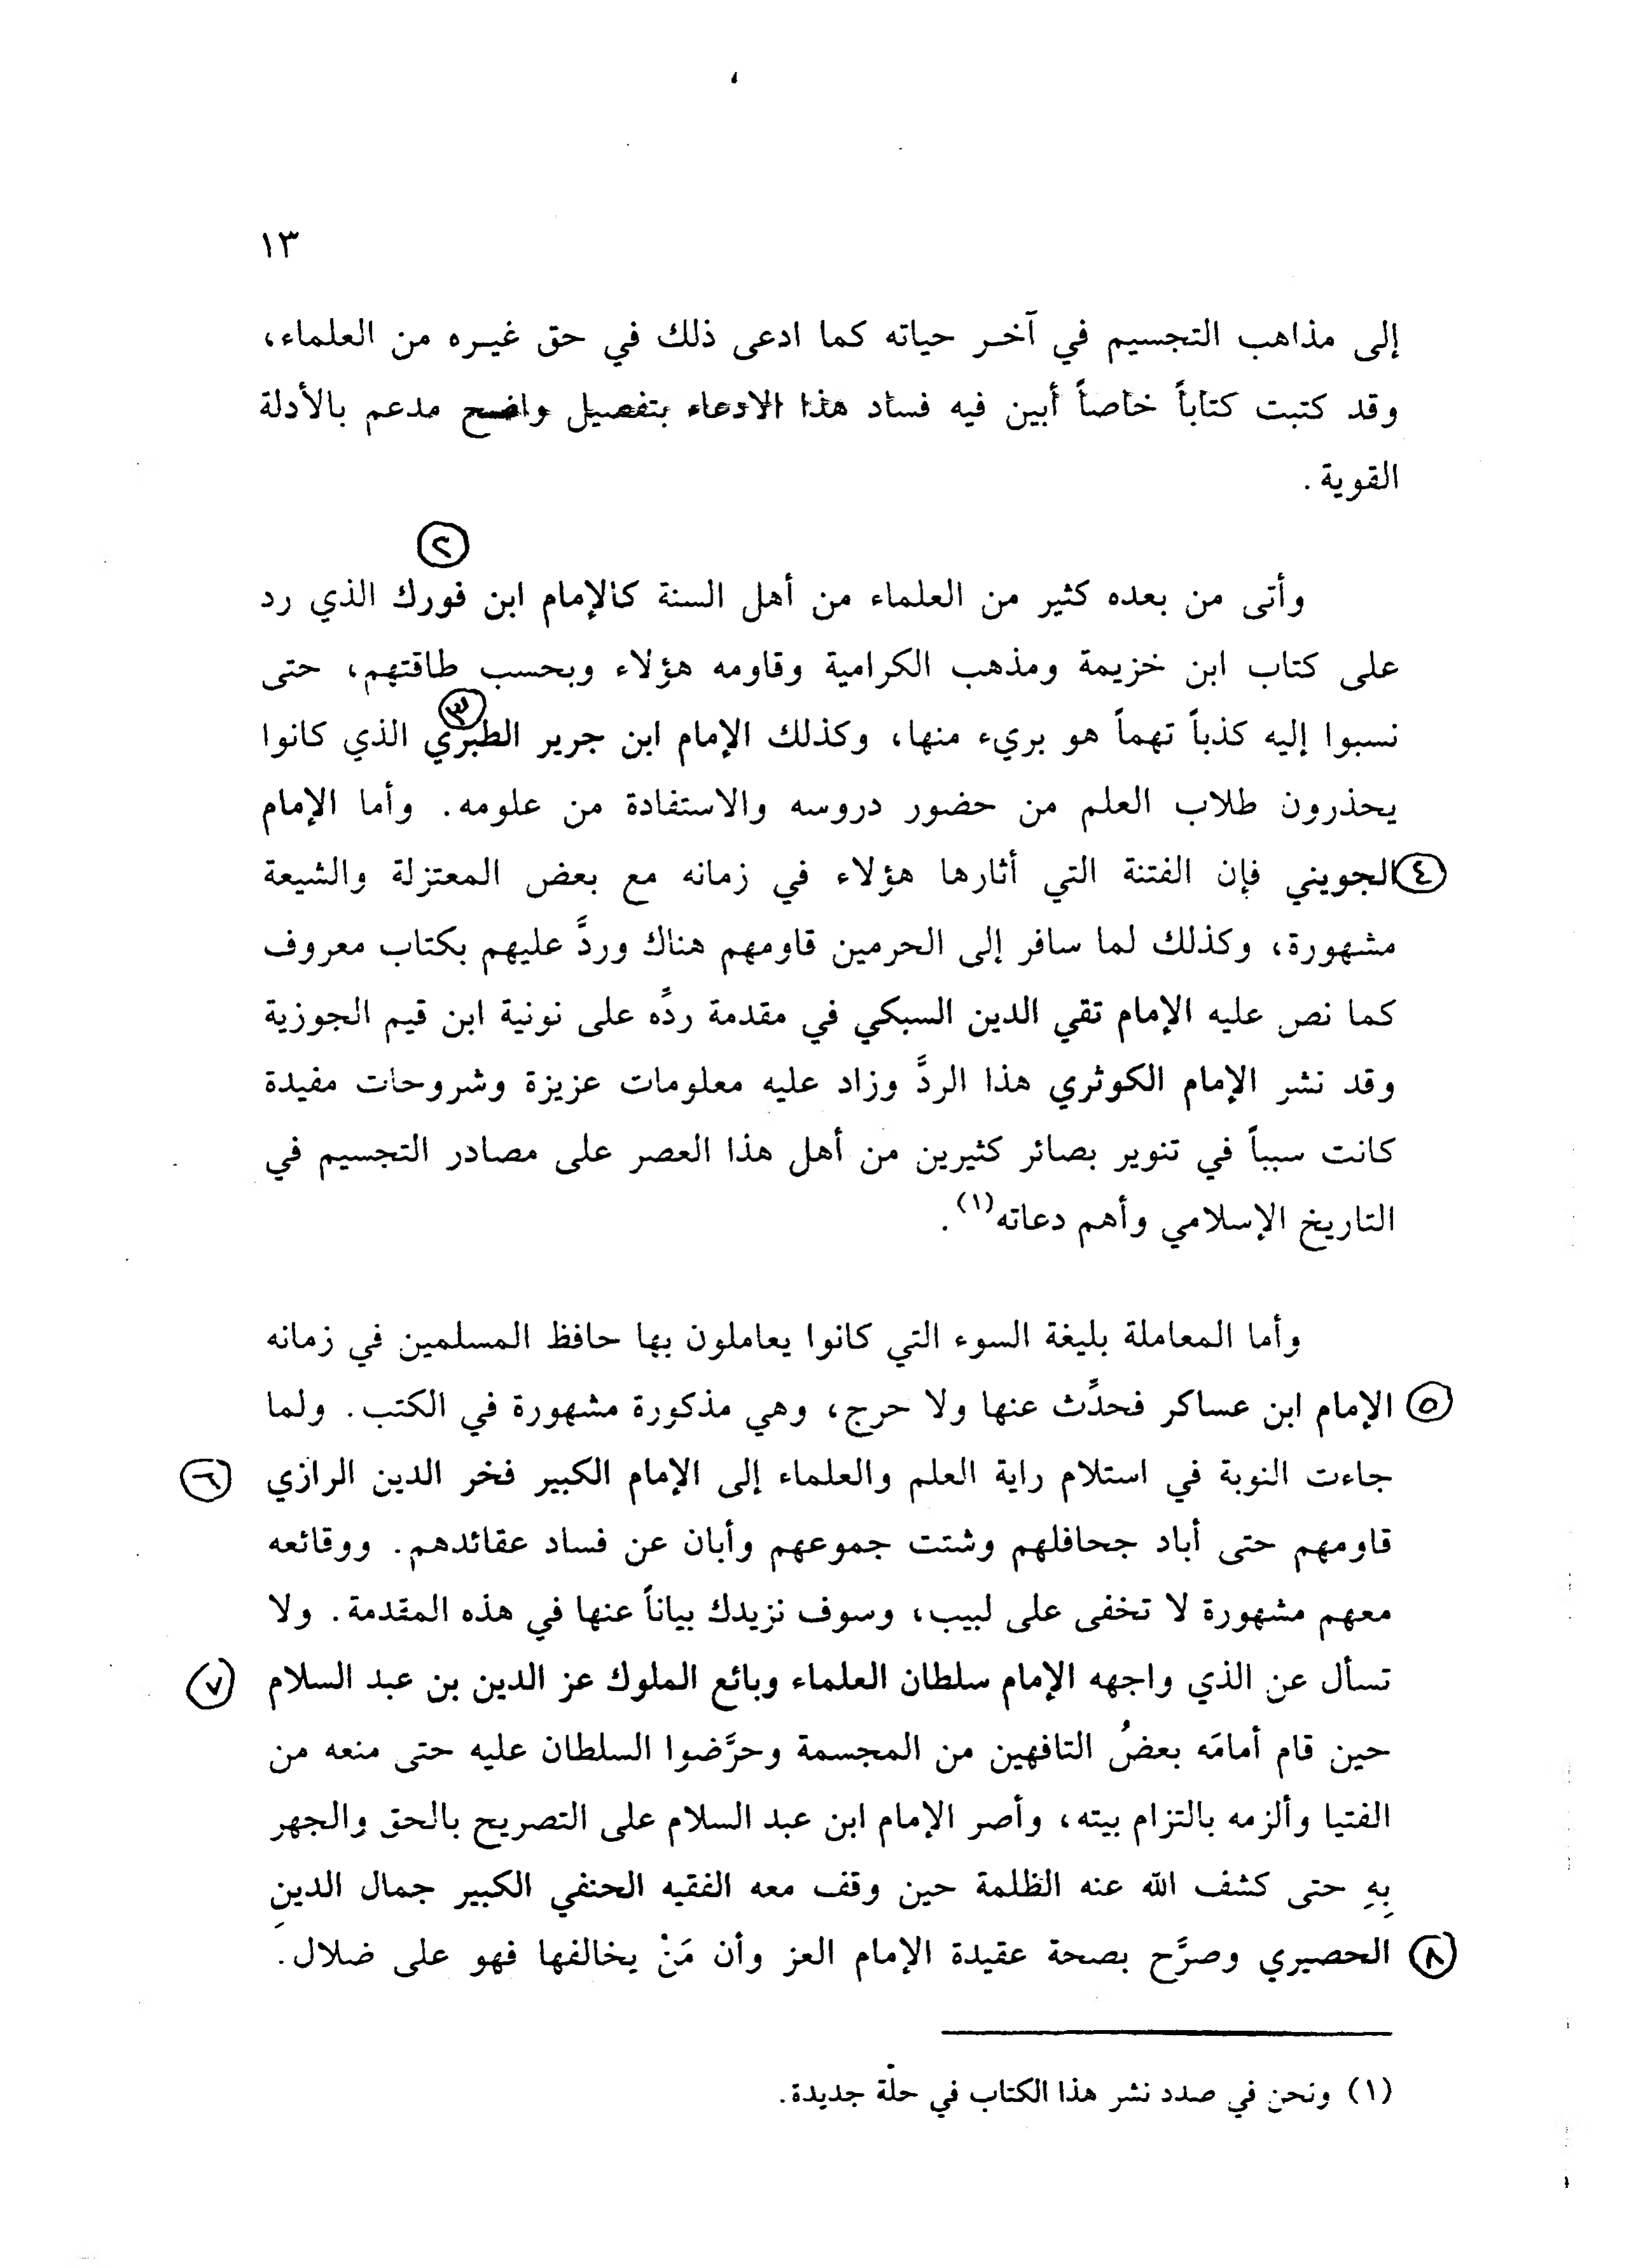 ١٣
إلى مذاهب التجسيم في آخر حياته كما ادعى ذلك في حق غيره من العلماء،
وقد كتبت كتاباً خاصاً أبين فيه فساد هذا الادعاء بتفصيل واضح مدعم بالأدلة
القوية.
٢
وأتى من بعده كثير من العلماء من أهل السنة كالإمام ابن فورك الذي رد
على كتاب ابن خزيمة ومذهب الكرامية وقاومه هؤلاء وبحسب طاقتهم، حتى
٣
نسبوا إليه كذباً تهماً هو بريء منها، وكذلك الإمام ابن جرير الطبري الذي كانوا
يحذرون طلاب العلم من حضور دروسه والاستفادة من علومه. وأما الإمام
٤ الجويني فإن الفتنة التي أثارها هؤلاء في زمانه مع بعض المعتزلة والشيعة
مشهورة، وكذلك لما سافر إلى الحرمين قاومهم هناك وردَّ عليهم بكتاب معروف
كما نص عليه الإمام تقي الدين السبكي في مقدمة ردِّه على نونية ابن قيم الجوزية
وقد نشر الإمام الكوثري هذا الردَّ وزاد عليه معلومات عزيزة وشروحات مفيدة
كانت سبباً في تنوير بصائر كثيرين من أهل هذا العصر على مصادر التجسيم في
التاريخ الإسلامي وأهم دعاته(١).
وأما المعاملة بليغة السوء التي كانوا يعاملون بها حافظ المسلمين في زمانه
٥ الإمام ابن عساكر فحدِّث عنها ولا حرج، وهي مذكورة مشهورة في الكتب. ولما
جاءت النوبة في استلام راية العلم والعلماء إلى الإمام الكبير فخر الدين الرازي ٦
قاومهم حتى أباد جحافلهم وشتت جموعهم وأبان عن فساد عقائدهم. ووقائعه
معهم مشهورة لا تخفى على لبيب، وسوف نزيدك بياناً عنها في هذه المقدمة. ولا
تسأل عن الذي واجهه الإمام سلطان العلماء وبائع الملوك عز الدين بن عبد السلام ٧
حين قام أمامَه بعضُ التافهين من المجسمة وحرَّضوا السلطان عليه حتى منعه من
الفتيا وألزمه بالتزام بيته، وأصر الإمام ابن عبد السلام على التصريح بالحق والجهر
بِهِ حتى كشف الله عنه الظلمة حين وقف معه الفقيه الحنفي الكبير جمال الدينِ
٨ الحصيري وصرَّح بصحة عقيدة الإمام العز وأن مَنْ يخالفها فهو على ضلال.
(١) ونحن في صدد نشر هذا الكتاب في حلّة جديدة.